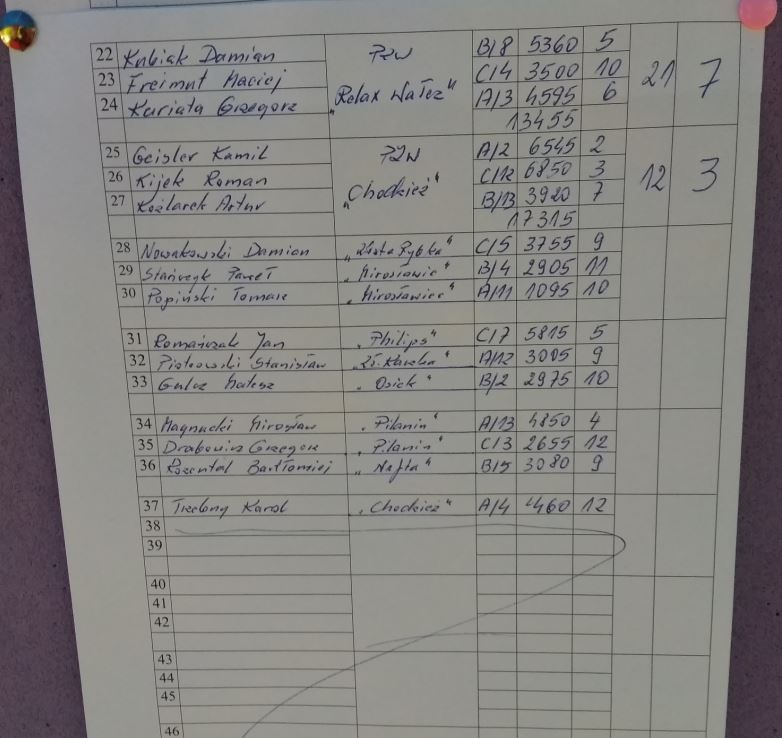 22 Kubiak Damian PZW B/8 5360 5
23 Freimut Maciej "Relax Wałcz" C/4 3500 10 21 7
24 Kariata Grzegorz A/3 4595 6
13455
25 Geisler Kamil PZW A/2 6545 2
26 Kijek Roman "Chodzież" C/12 6850 3 12 3
27 Koźlarek Artur B/13 3920 7
17315
28 Nowakowski Damian "Złota Rybka" C/5 3755 9
29 Stańczyk Paweł "Mirosławiec" B/4 2905 11
30 Popiński Tomasz "Mirosławiec" A/11 1095 10
31 Romańczak Jan "Philips" C/7 5815 5
32 Piotrowski Stanisław A/12 3005 9
33 Mateusz "Osiek" B/2 2975 10
34 Magnucki Mirosław "Pilanin" A/13 4850 4
35 Drabowicz Grzegorz "Pilanin" C/3 2655 12
36 Rozental Bartłomiej "Nafta" B/5 3080 9
37 Karol "Chodzież" A/4 460 12
38
39
40
41
42
43
44
45
46